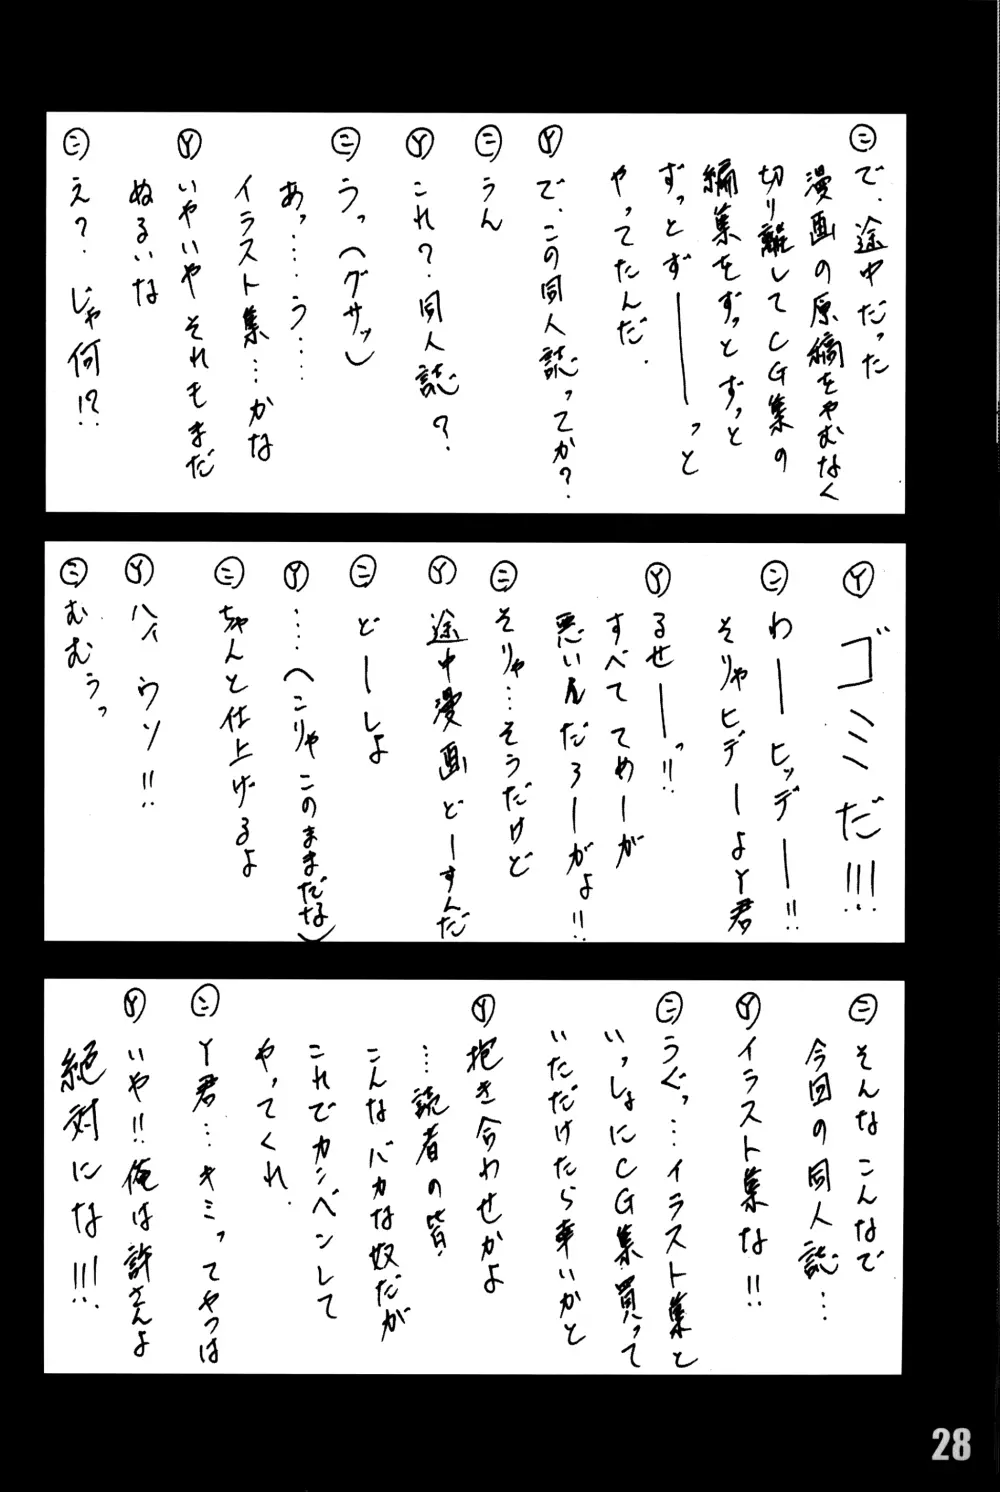 ㊁ で、途中だった
漫画の原稿をやむなく
切り離してCG集の
編集をずっとずっと
ずっとずーーーっと
やってたんだ.
Ⓨ で、この同人誌ってか?
㊁ うん
Ⓨ これ?同人誌?
㊁ うっ(グサッ)
あっ‥‥う‥‥
イラスト集…かな
Ⓨ いやいやそれもまだ
ぬるいな
㊁ え?じゃ何!?
Ⓨ ゴミだ!!!
㊁ わーーヒッデー!!
そりゃヒデーよY君
Ⓨ るせーーっ!!
すべててめーが
悪いんだろーがよ!!
㊁ そりゃ…そうだけど
Ⓨ 途中漫画どーすんだ
㊁ どーしよ
Ⓨ ‥‥(こりゃこのままだな)
㊁ ちゃんと仕上げるよ
Ⓨ ハイウソ!!
㊁ むむぅっ
㊁ そんなこんなで
今回の同人誌…
Ⓨ イラスト集な!!
㊁ うぐっ…イラスト集と
いっしょにCG集買って
いただけたら幸いかと
Ⓨ 抱き合わせかよ
…読者の皆.
こんなバカな奴だが
これでカンベンして
やってくれ.
㊁ Y君…キミってやつは
Ⓨ いや!!俺は許さんよ
絶対にな!!!
28